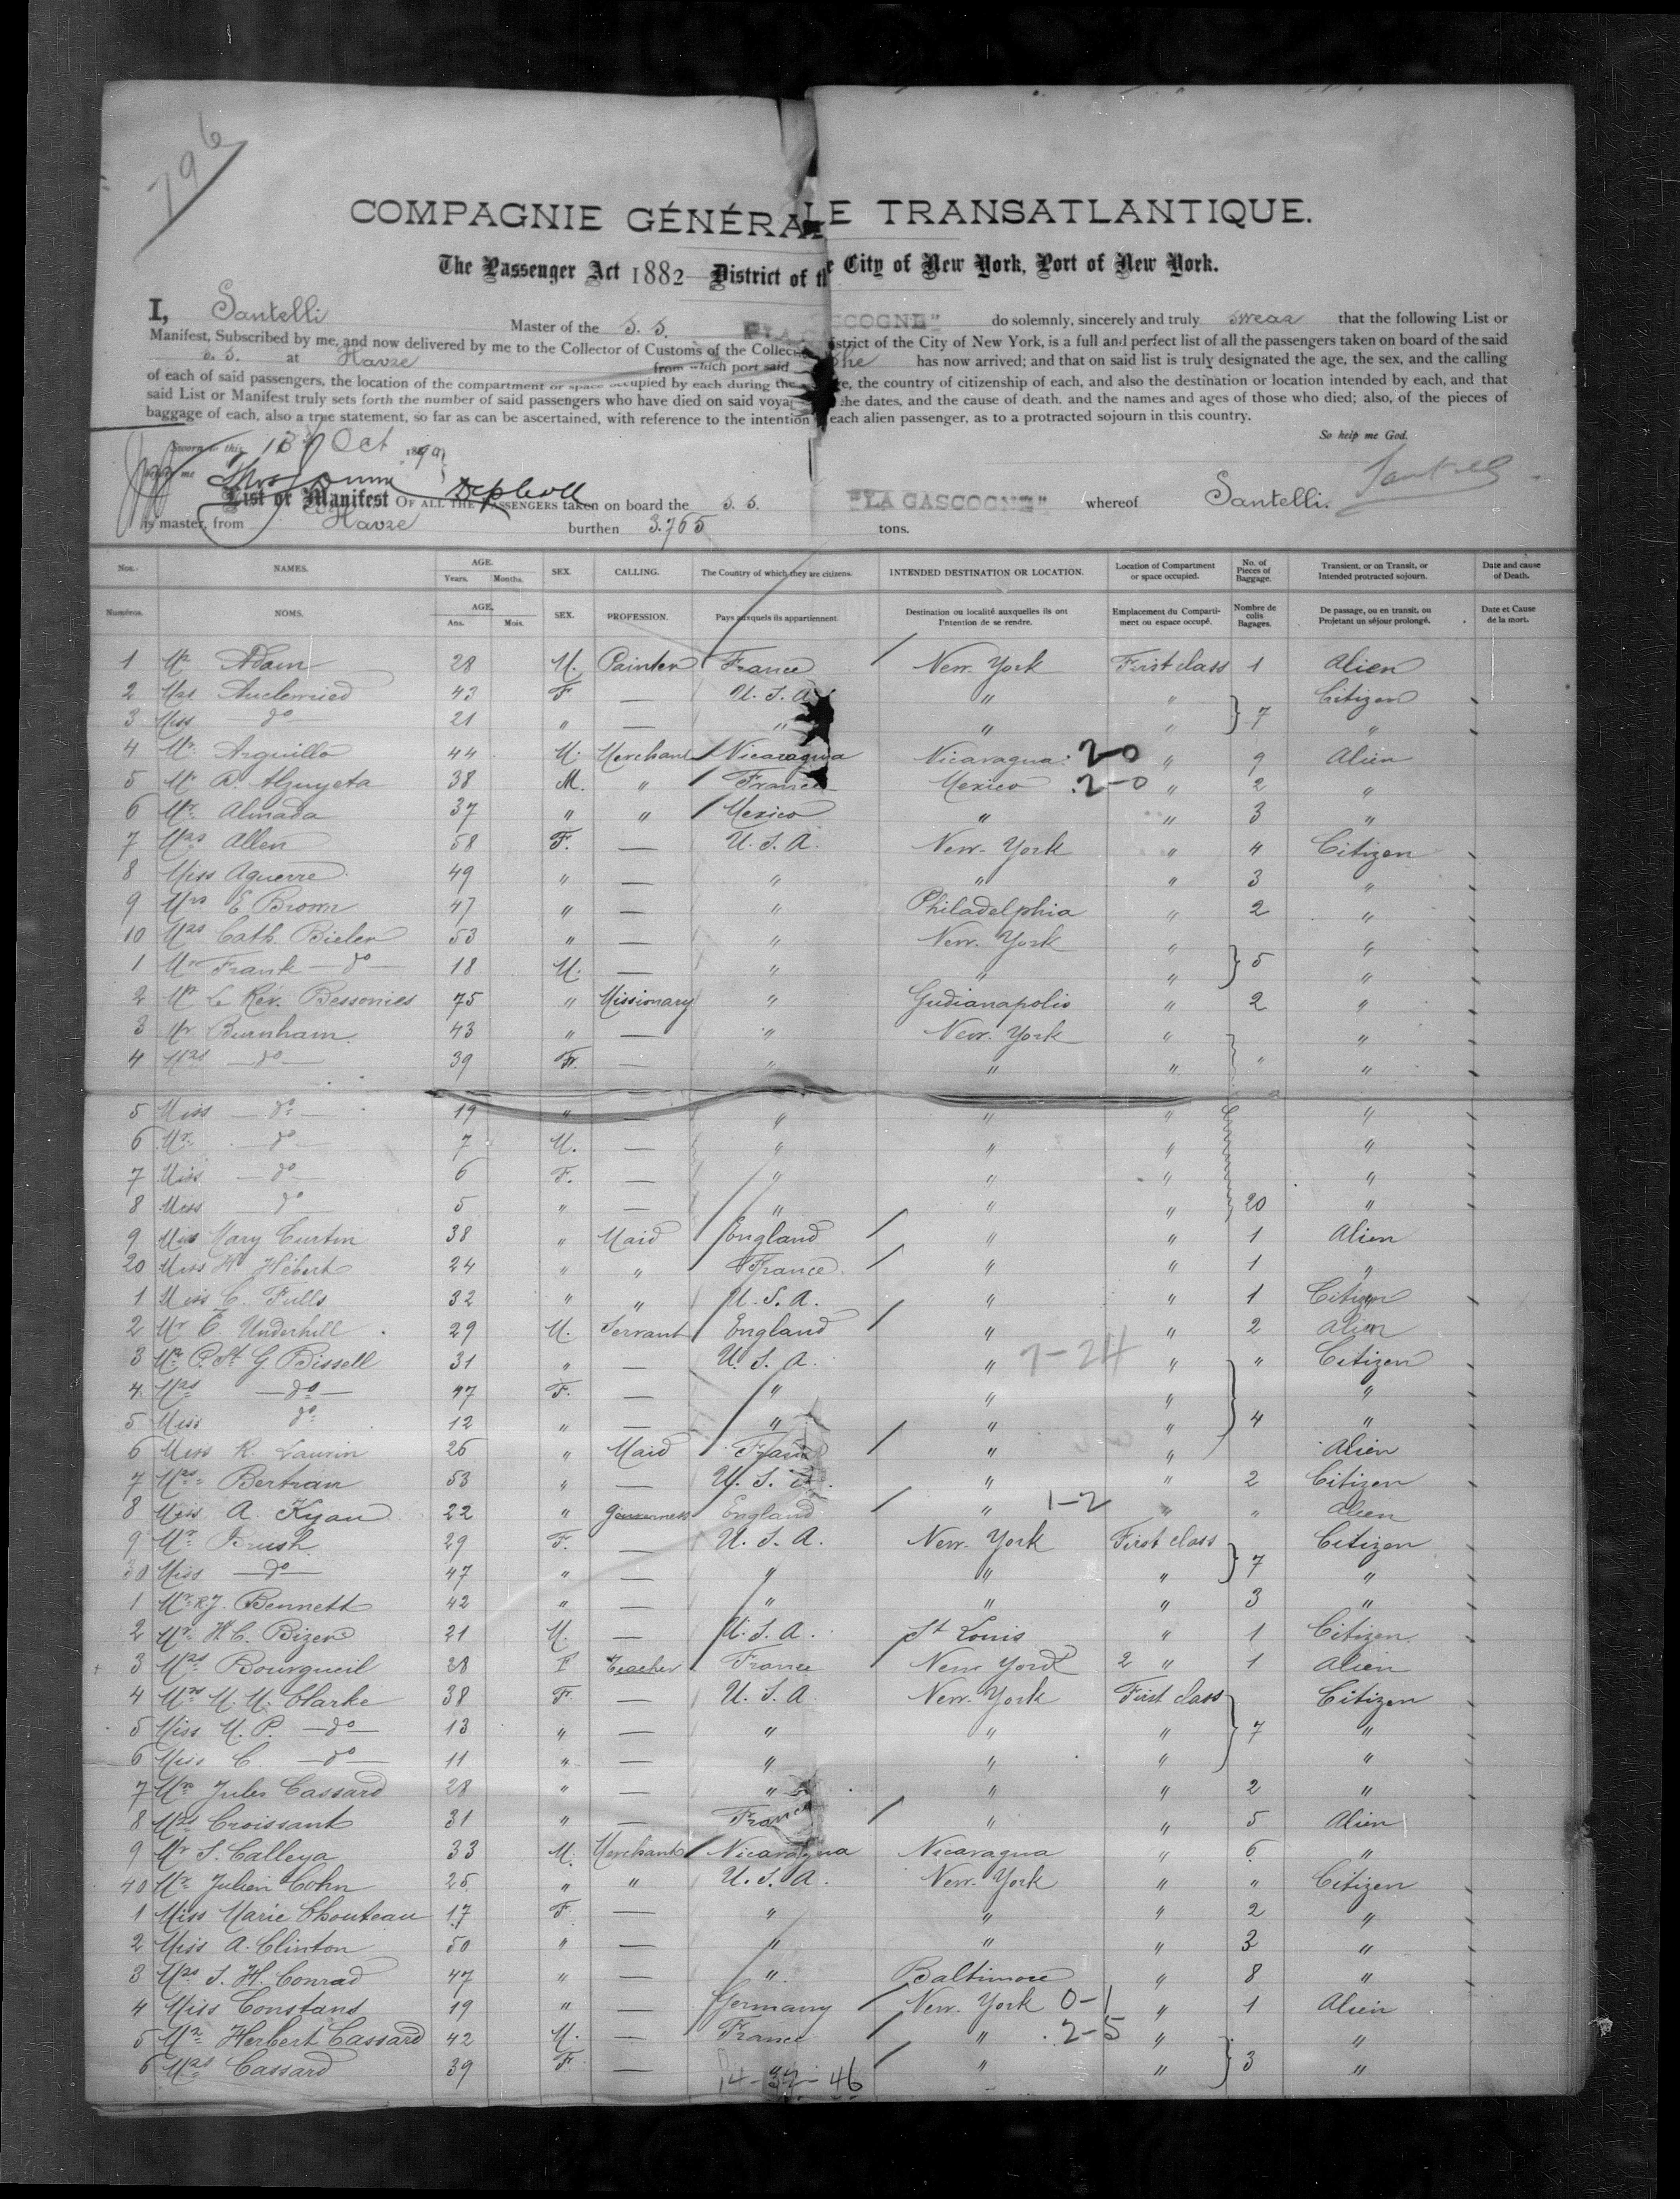 796
COMPAGNIE GÉNÉRALE TRANSATLANTIQUE.
The Passenger Act 1882 District of the City of New York, Port of New York.
I, Santelli Master of the S. S. COGNE" do solemnly, sincerely and truly swear that the following List or
Manifest, Subscribed by me, and now delivered by me to the Collector of Customs of the Collec istrict of the City of New York, is a full and perfect list of all the passengers taken on board of the said
S. S. at Havre from which port said She has now arrived; and that on said list is truly designated the age, the sex, and the calling
of each of said passengers, the location of the compartment or space occupied by each during the e, the country of citizenship of each, and also the destination or location intended by each, and that
said List or Manifest truly sets forth the number of said passengers who have died on said voya the dates, and the cause of death, and the names and ages of those who died; also, of the pieces of
baggage of each, also a true statement, so far as can be ascertained, with reference to the intention each alien passenger, as to a protracted sojourn in this country.
So help me God.
Sworn to this 13 Oct
before me
Santelli
List or Manifest OF ALL THE PASSENGERS taken on board the S. S. "LA GASCOGNE" whereof Santelli.
is master, from Havre burthen 3.765 tons.
Nos. NAMES. AGE. Years. Months. SEX. CALLING. The Country of which they are citizens. INTENDED DESTINATION OR LOCATION. Location of Compartment or space occupied. No. of Pieces of Baggage. Transient, or on Transit, or Intended protracted sojourn. Date and cause of Death.
Numéros. NOMS. AGE. Ans. Mois. SEX. PROFESSION. Pays auxquels ils appartiennent. Destination ou localité auxquelles ils ont l'intention de se rendre. Emplacement du Compartiment ou espace occupé. Nombre de colis Bagages. De passage, ou en transit, ou Projetant un séjour prolongé. Date et Cause de la mort.
1 Mr Adam 28 M. Painter France New-York First class 1 Alien
2 Mrs 43 F — U. S. A. " " Citizen
3 Miss — do — 21 " — " " " 7 "
4 Mr Arguillo 44 M. Merchant Nicaragua Nicaragua 2-0 " 9 Alien
5 Mr A. Alzuyeta 38 M. " France Mexico 2-0 " 2 "
6 Mr. Almada 37 " " Mexico " " 3 "
7 Mrs Allen 58 F. — U. S. A. New-York " 4 Citizen
8 Miss Aguerre 49 " — " " " 3 "
9 Mrs E Brown 47 " — " Philadelphia " 2 "
10 Mrs Cath. Bieler 53 " — " New-York " "
1 Mr Frank — do — 18 M. — " " " 5 "
2 Mr Le Rev. Bessonies 75 " Missionary " Gudianapolis " 2 "
3 Mr Burnham 43 " — " New-York " "
4 Mrs — do — 39 F. — " " " " "
5 Miss — do — 19 " — " " " "
6 Mr — do — 7 M. — " " " "
7 Miss — do — 6 F. — " " " "
8 Miss do 5 " — " " " 20 "
9 Miss Mary Curtin 38 " Maid England " " 1 Alien
20 Miss H. Hébert 24 " " France " " 1 "
1 Miss C. Fulls 32 " " U. S. A. " " 1 Citizen
2 Mr E. Underhill 29 M. Servant England " " 2 Alien
3 Mr P. St G. Bissell 31 " — U. S. A. " 7-24 " " Citizen
4 Mrs — do — 47 F. — " " " "
5 Miss do 12 " — " " " 4 "
6 Miss R. Laurin 26 " Maid France " " Alien
7 Mrs Bertran 53 " — U. S. A. " " 2 Citizen
8 Miss A. Kyan 22 " Gouverness England " 1-2 " " Alien
9 Mr Brush 29 F. — U. S. A. New-York First class Citizen
30 Miss — do — 47 " — " " " 7 "
1 Mr R. J. Bennett 42 " — " " " 3 "
2 Mr H. C. Bizer 21 M. — U. S. A. St Louis " 1 Citizen
3 Mrs Bourgueil 28 F Teacher France New York 2 " 1 Alien
4 Mrs M. M. Clarke 38 F — U. S. A. New-York First class Citizen
5 Miss M. P. — do — 13 " — " " " 7 "
6 Miss C. — do — 11 " — " " " "
7 Mr Jules Cassard 28 " — " " " 2 "
8 Mrs Croissant 31 " — France " " 5 Alien
9 Mr S. Calleya 33 M. Merchant Nicaragua Nicaragua " 6 "
40 Mr Julien Cohn 25 " " U. S. A. New-York " " Citizen
1 Miss Marie Chouteau 17 F. — " " " 2 "
2 Miss A. Clinton 50 " — " " " 3 "
3 Mrs S. H. Conrad 47 " — " Baltimore " 8 "
4 Miss Constans 19 " — Germany New-York 0-1 " 1 Alien
5 Mr Herbert Cassard 42 M. — France " 2-5 " "
6 Mrs Cassard 39 F. — " " " 3 "
14-32-46